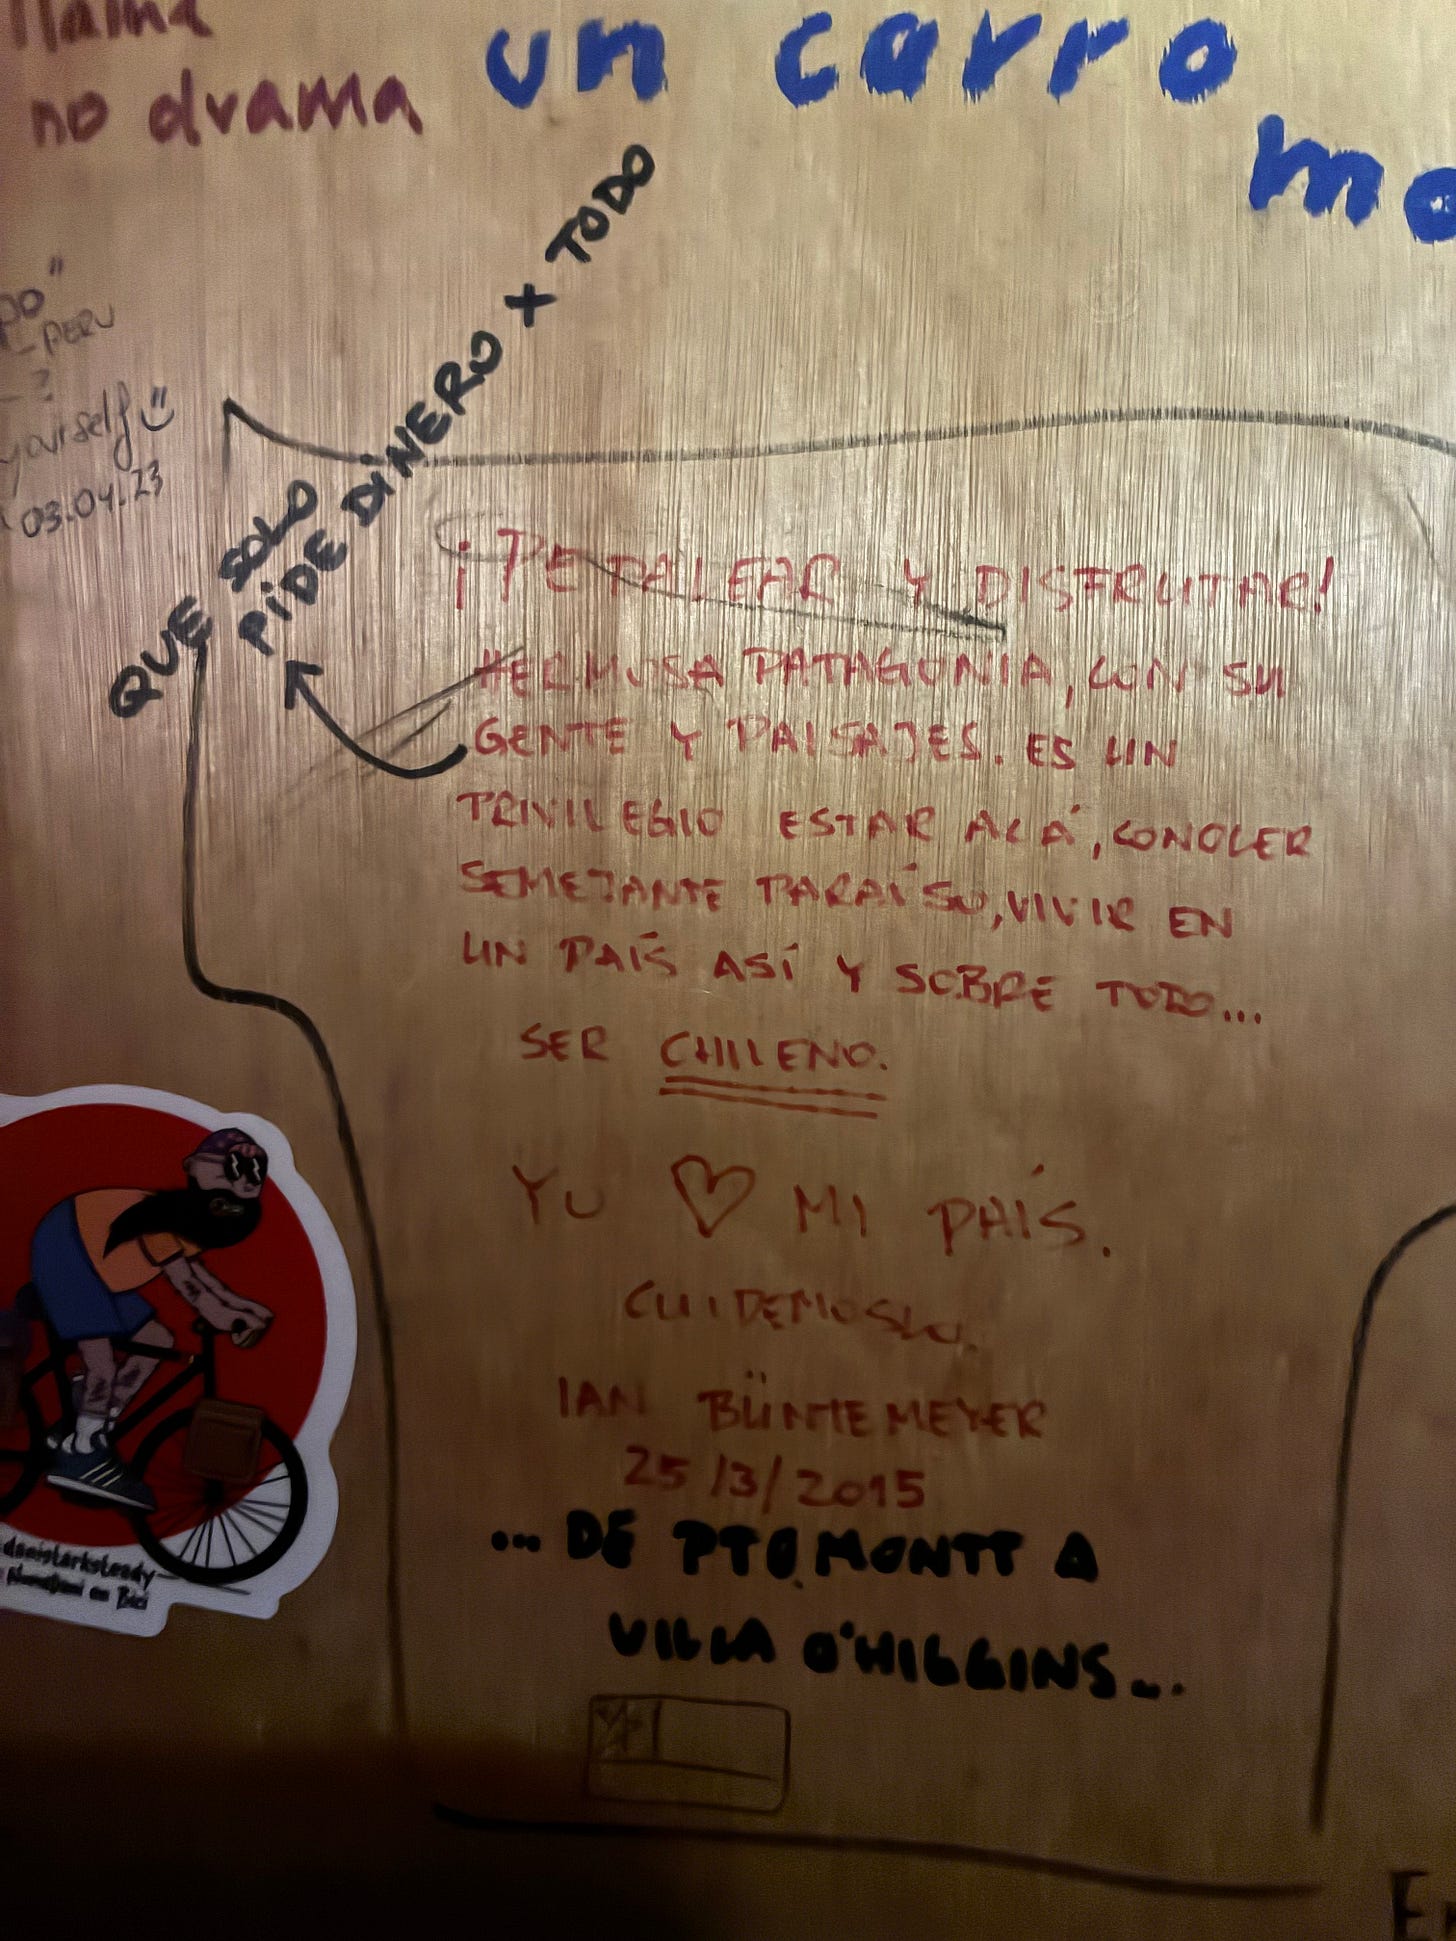 llama
no drama
un carro
mo
PERU
yourself
03.04.23
QUE SOLO
PIDE DINERO X TODO
¡PETALEAR Y DISFRUTAR!
HERMOSA PATAGONIA, CON SU
GENTE Y PAISAJES. ES UN
PRIVILEGIO ESTAR ACÁ, CONOCER
SEMEJANTE PARAÍSO, VIVIR EN
UN PAÍS ASÍ Y SOBRE TODO...
SER CHILENO.
YO ♡ MI PAÍS.
CUIDEMOSLO.
IAN BÜNTEMEYER
25/3/2015
... DE PTO. MONTT A
VILLA O'HIGGINS...